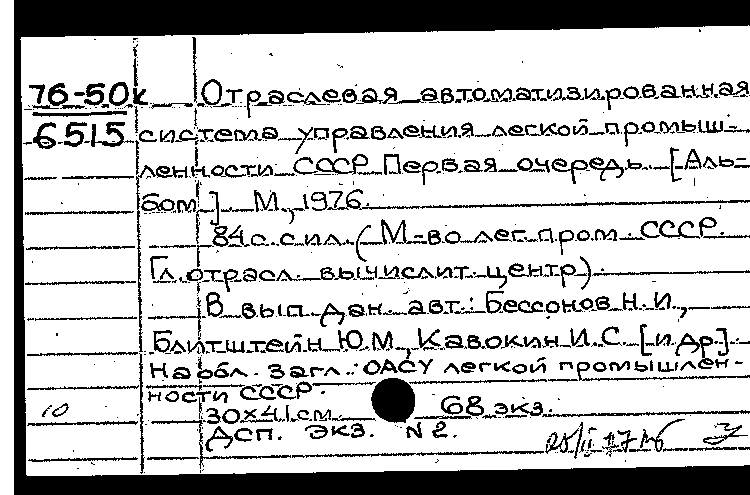 76-50к Отраслевая автоматизированная
6515 система управления легкой промыш-
ленности СССР Первая очередь. [Аль-
бом]. М., 1976.
84 с. с ил. (М-во лег. пром. СССР.
Гл. отрасл. вычислит. центр).
В вып. дан. авт.: Бессонов Н.И.,
Блитштейн Ю.М., Кавокин И.С. [и др.].
На обл. загл.: ОАСУ легкой промышлен-
ности СССР.
10 30×41 см. 68 экз.
ДСП. экз. N 2.